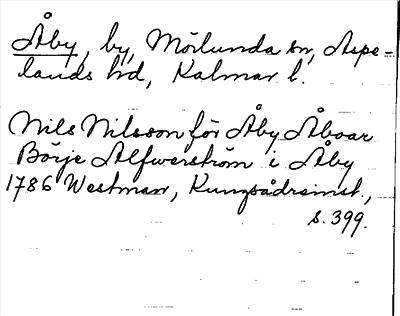 Åby, by, Mörlunda sn, Aspe-
lands hd, Kalmar l.
Nils Nilsson för Åby Åboar
Börje Alfwerström i Åby
1786 Westman, Kungsådreinst.,
s. 399.